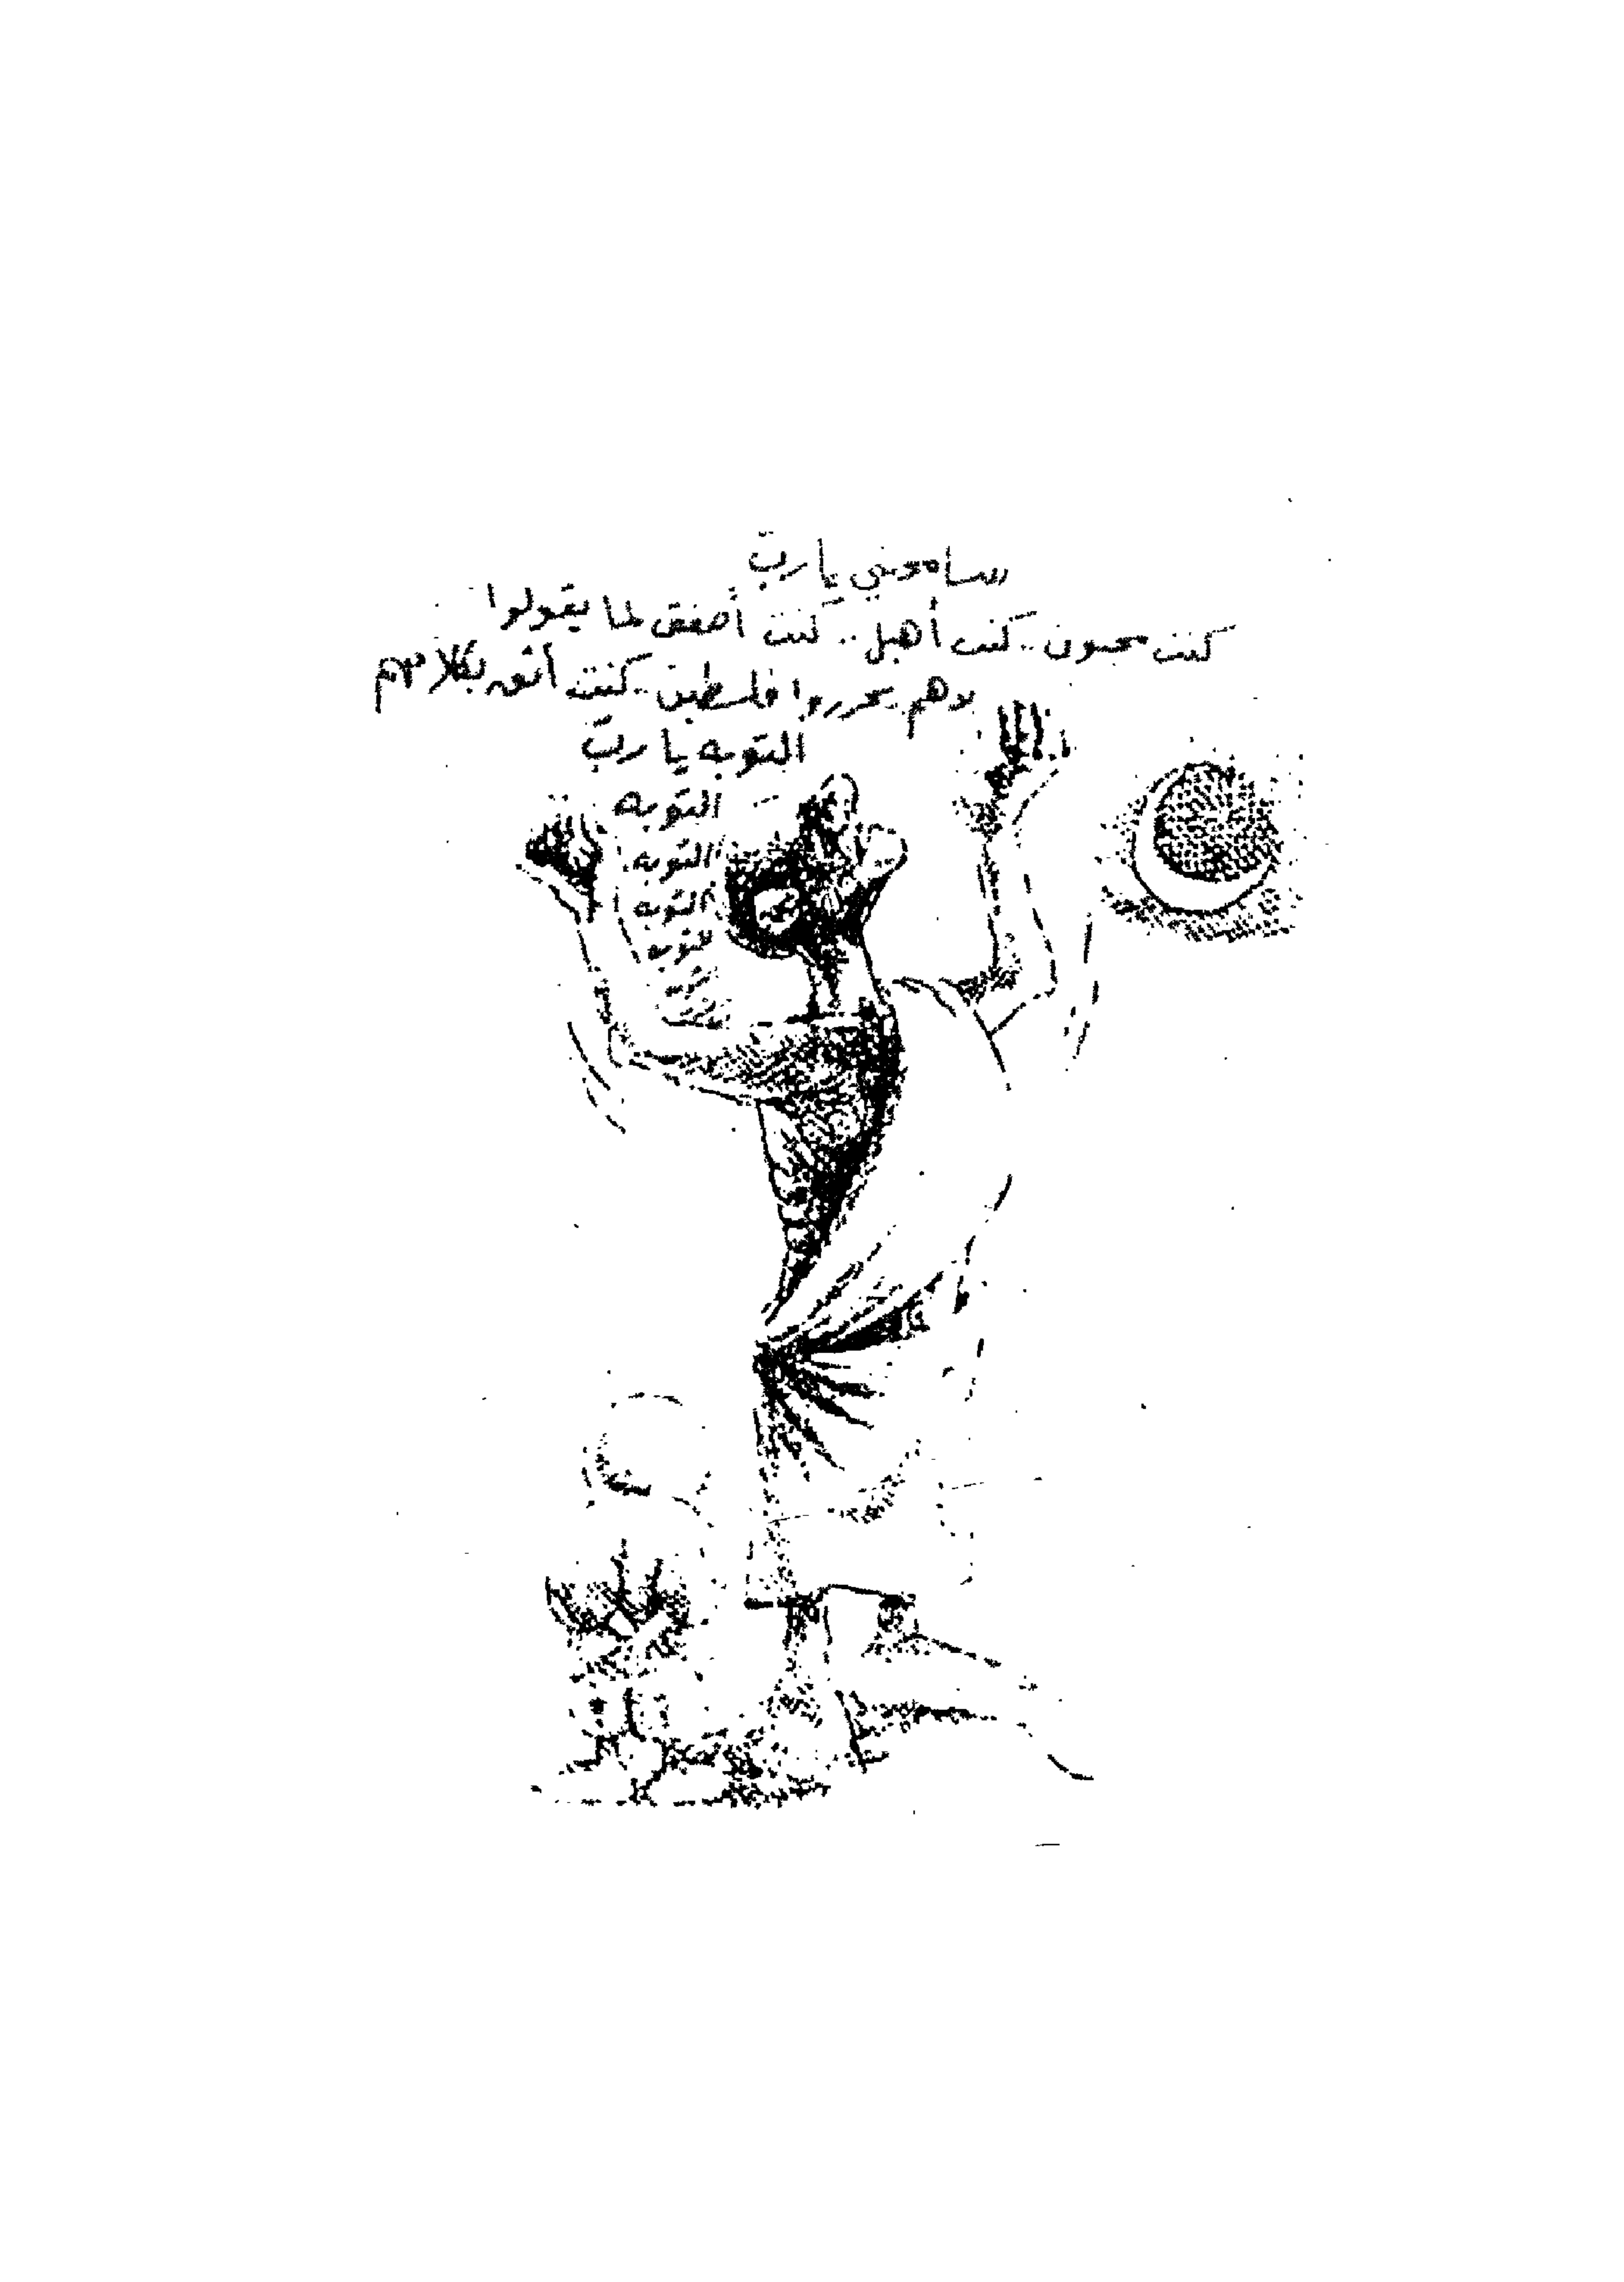 سامحني يا ربّ
كنت مجنون.. كنت أهبل.. كنت أصفق لما يقولوا
بدهم يحرروا فلسطين.. كنت أثق بكلامهم
التوبه يا ربّ
التوبه
التوبه
التوبه
التوبه